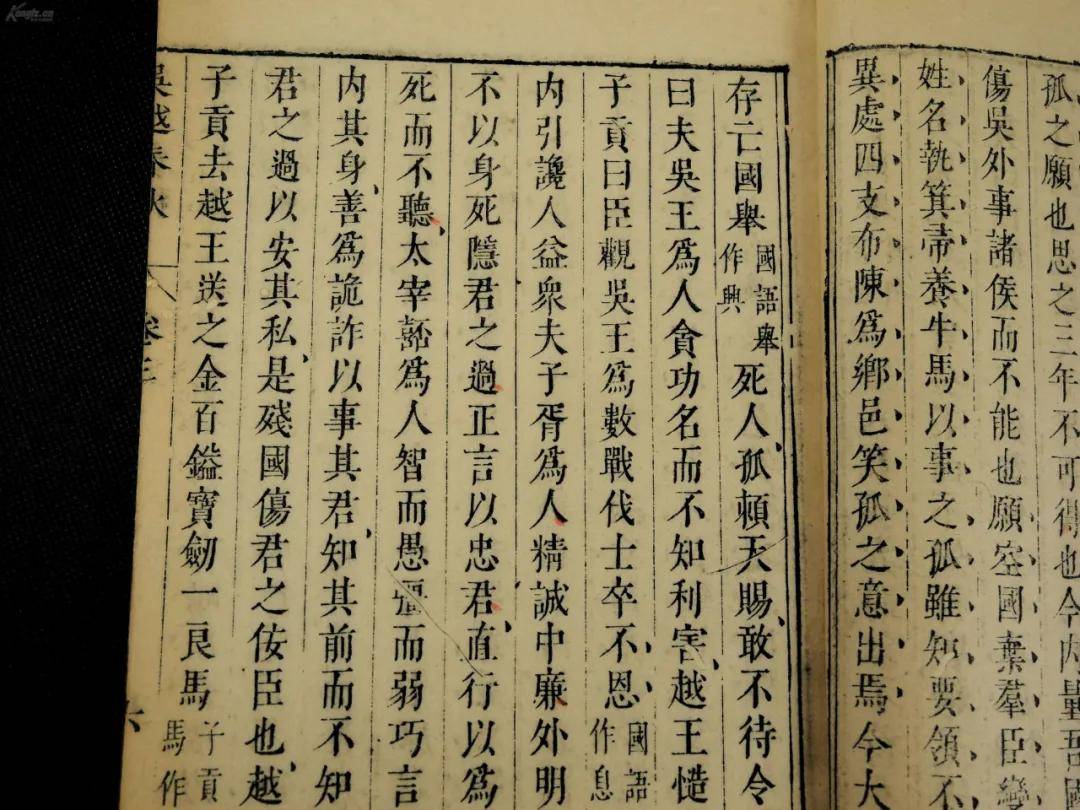 孤之願也思之三年不可得也今内量吾國
傷吳外事諸侯而不能也願空國棄羣臣變
姓名執箕帚養牛馬以事之孤雖知要領不
異處四支布陳爲鄉邑笑孤之意出焉今大
存亡國舉國語舉作興死人孤賴天賜敢不待令
曰夫吳王爲人貪功名而不知利害越王慥
子貢曰臣觀吳王爲數戰伐士卒不恩國語作息
内引讒人益衆夫子胥爲人精誠中廉外明
不以身死隱君之過正言以忠君直行以爲
死而不聽太宰嚭爲人智而愚彊而弱巧言
内其身善爲詭詐以事其君知其前而不知
君之過以安其私是殘國傷君之佞臣也越
子貢去越王送之金百鎰寶劒一良馬子貢馬作
吳越春秋 卷三 六
Kongfz.cn